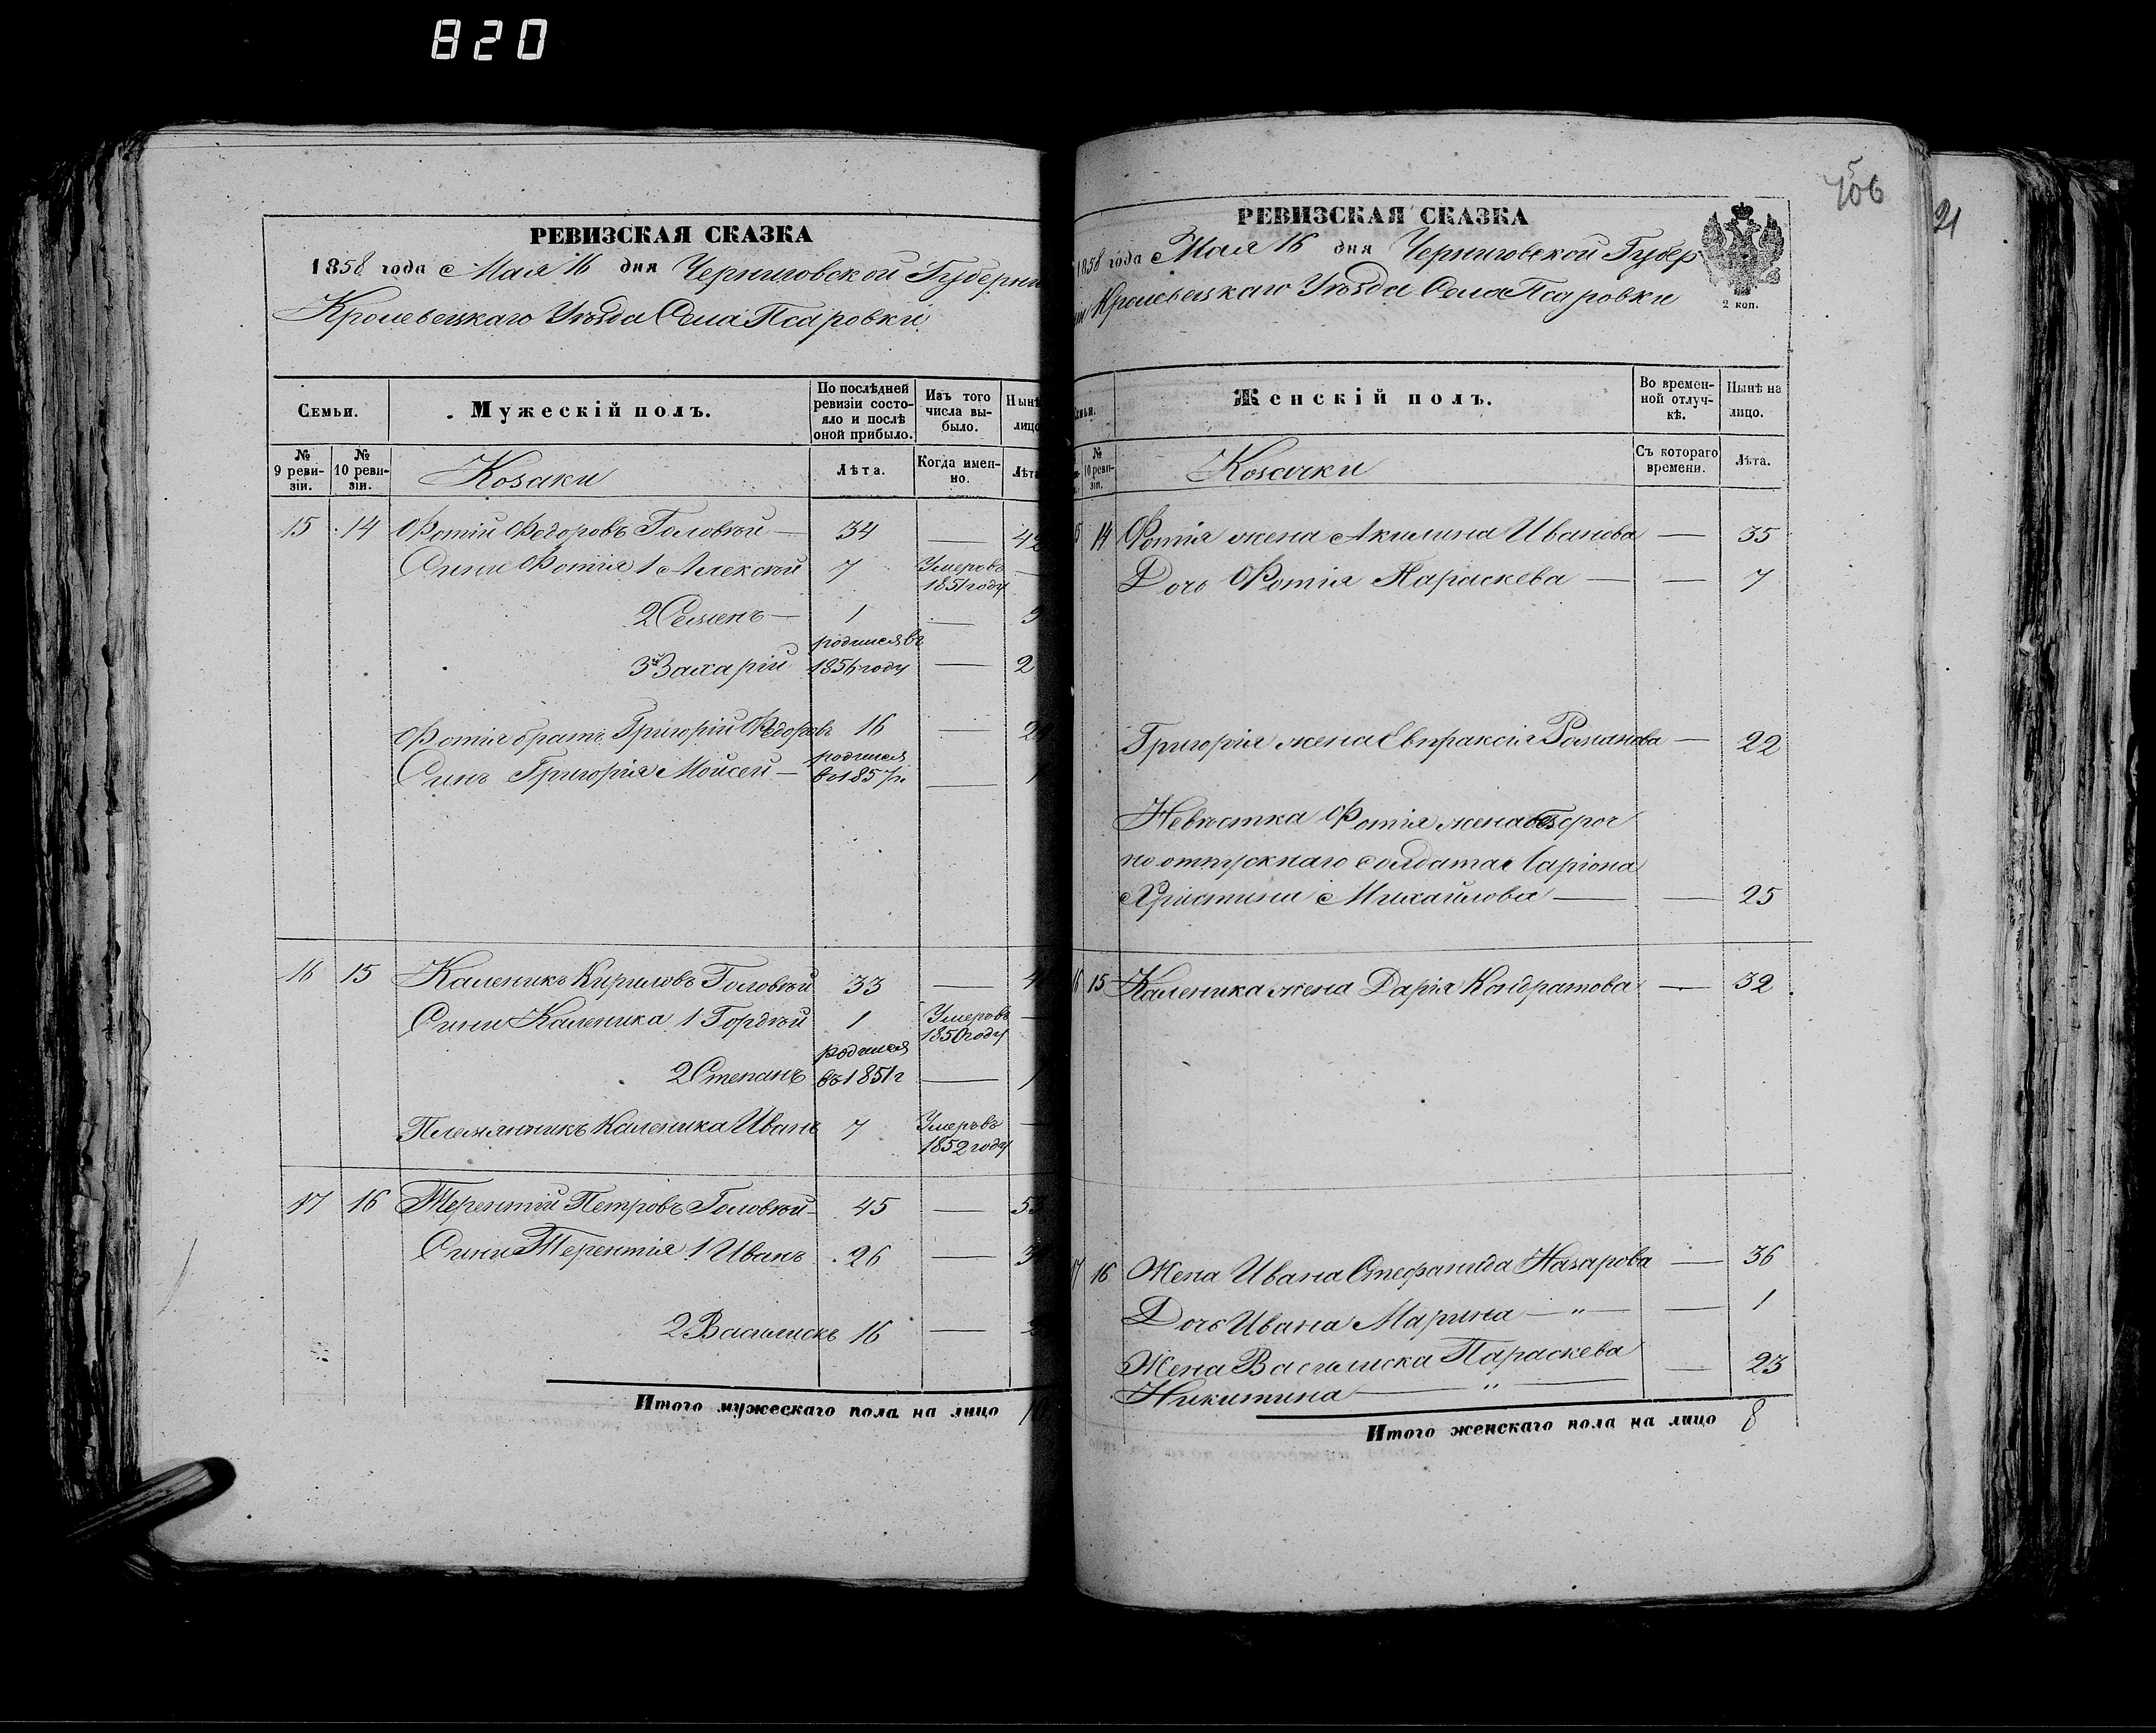 820
РЕВИЗСКАЯ СКАЗКА
1858 года Мая 16 дня Черниговской Губерни
Кролевецкаго Уѣзда Села Псаровки
Семьи.
Мужескій полъ.
По послѣдней ревизіи состояло и послѣ оной прибыло.
Изъ того числа выбыло.
Нынѣ лицо
№ 9 ревизіи.
№ 10 ревизіи.
Козаки
Лѣта.
Когда именно.
Лѣта
15 14 Фотій Федоровъ Головѣй — 34 — 42
Сини Фотія 1 Алексѣй 7 Умеръ въ 1851 году —
2 Семенъ — 1 —
3й Захарій родился въ 1856 году — 2
Фотія братъ Григорій Федоровъ 16 — 2
Синъ Григорія Мойсей — родился въ 1857 г. — 1
16 15 Каленикъ Кириловъ Головѣй 33 — 4
Сини Каленика 1 Гордѣй 1 Умеръ въ 1850 году —
2 Степанъ родился въ 1851 г —
Племянникъ Каленика Иванъ 7 Умеръ въ 1852 году —
17 16 Терентій Петровъ Головѣй — 45 — 53
Сини Терентія 1 Иванъ 26 — 3
2 Василискъ 16 — 2
Итого мужескаго пола на лицо 10
506
21
РЕВИЗСКАЯ СКАЗКА
1858 года Мая 16 дня Черниговской Губер
ніи Кролевецкаго Уѣзда Села Псаровки
2 коп.
Семьи.
Женскій полъ.
Во временной отлучкѣ.
Нынѣ на лицо.
№ 10 ревизіи.
Козачки
Съ котораго времени.
Лѣта.
15 14 Фотія жена Акилина Иванова — 35
Дочь Фотія Параскева — — 7
Григорія жена Евпраксія Романова — 22
Невѣстка Фотія жена безсроч
но отпускнаго солдата Іларіона
Христина Михайлова — — 25
16 15 Каленика жена Дарія Кондратова — 32
17 16 Жена Ивана Стефанида Назарова — 36
Дочь Ивана Марина — " — — 1
Жена Василиска Параскева — 23
Никитина — " —
Итого женскаго пола на лицо 8